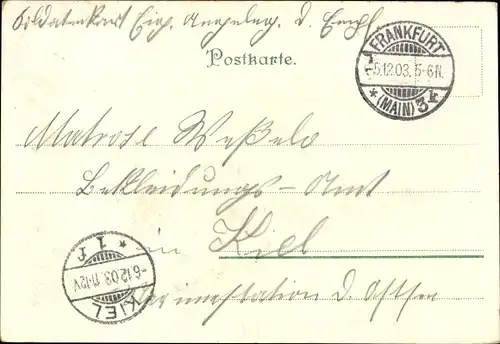 Soldatenkart Eig. Angeleg. d. Empf.
Postkarte.
FRANKFURT
-5.12.03. 5-6N.
* (MAIN) 3 k
Matrose
Bekleidungs-Amt
in Kiel
Marinestation d. Ostsee
KIEL
-6.12.03. 11-12V
* 1 r